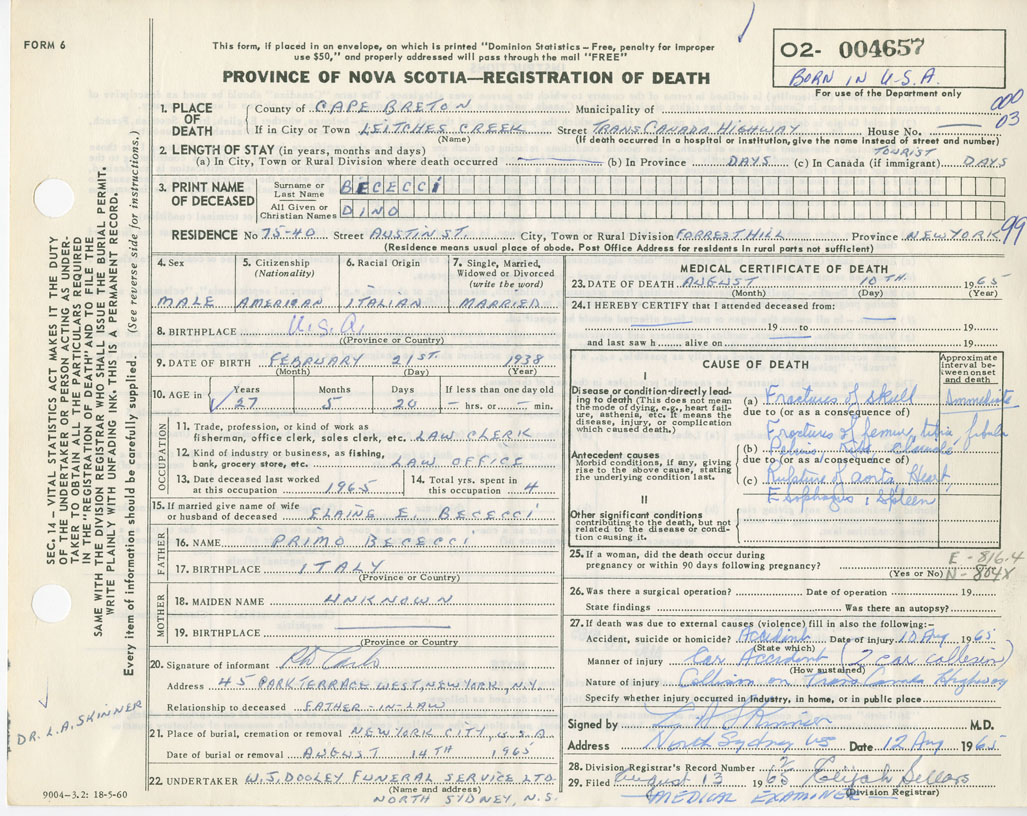 FORM 6
This form, if placed in an envelope, on which is printed "Dominion Statistics – Free, penalty for improper
use $50," and properly addressed will pass through the mail "FREE"
PROVINCE OF NOVA SCOTIA—REGISTRATION OF DEATH
02- 004657
BORN IN U.S.A.
For use of the Department only
000
03
1. PLACE OF DEATH
County of CAPE BRETON Municipality of
If in City or Town LEITCHES CREEK Street TRANS CANADA HIGHWAY House No.
(Name) (If death occurred in a hospital or institution, give the name Instead of street and number)
2. LENGTH OF STAY (in years, months and days) TOURIST
(a) In City, Town or Rural Division where death occurred (b) In Province DAYS (c) In Canada (if immigrant) DAYS
3. PRINT NAME OF DECEASED
Surname or Last Name BECECCI
All Given or Christian Names DINO
RESIDENCE No 75-40 Street AUSTIN ST. City, Town or Rural Division FORREST HILL Province NEW YORK 99
(Residence means usual place of abode. Post Office Address for residents in rural parts not sufficient)
4. Sex
MALE
5. Citizenship
(Nationality)
AMERICAN
6. Racial Origin
ITALIAN
7. Single, Married,
Widowed or Divorced
(write the word)
MARRIED
8. BIRTHPLACE U.S.A.
((Province or Country)
9. DATE OF BIRTH FEBRUARY 21ST. 1938
(Month) (Day) (Year)
10. AGE in Years 27 Months 5 Days 20 If less than one day old
– hrs. or – min.
OCCUPATION
11. Trade, profession, or kind of work as
fisherman, office clerk, sales clerk, etc. LAW CLERK
12. Kind of industry or business, as fishing,
bank, grocery store, etc. LAW OFFICE
13. Date deceased last worked
at this occupation 1965
14. Total yrs. spent in
this occupation 4
15. If married give name of wife
or husband of deceased ELAINE E. BECECCI
FATHER
16. NAME PRIMO BECECCI
17. BIRTHPLACE ITALY
(Province or Country)
MOTHER
18. MAIDEN NAME UNKNOWN
19. BIRTHPLACE
(Province or Country)
20. Signature of informant
Address 45 PARK TERRACE WEST NEW YORK, N.Y.
Relationship to deceased FATHER-IN-LAW
21. Place of burial, cremation or removal NEW YORK CITY U.S.A.
Date of burial or removal AUGUST 14TH 1965
22. UNDERTAKER W.J. DOOLEY FUNERAL SERVICE LTD.
(Name and address)
NORTH SYDNEY, N.S.
MEDICAL CERTIFICATE OF DEATH
23. DATE OF DEATH AUGUST 10TH 1965
(Month) (Day) (Year)
24. I HEREBY CERTIFY that I attended deceased from:
19 to 19
and last saw h alive on 19
CAUSE OF DEATH
Approximate
interval be-
tween onset
and death
I
Disease or condition directly lead-
ing to death (This does not mean
the mode of dying, e.g., heart fail-
ure, asthenia, etc. It means the
disease, injury, or complication
which caused death.)
(a) Fractures of skull Immediate
due to (or as a consequence of)
Fractures of femur, tibia, fibula
(b) Pelvis, Ribs,
due to (or as a consequence of)
Antecedent causes
Morbid conditions, if any, giving
rise to the above cause, stating
the underlying condition last.
(c) Rupture of aorta, Heart,
Esophagus, Spleen
II
Other significant conditions
contributing to the death, but not
related to the disease or condi-
tion causing it.
25. If a woman, did the death occur during
pregnancy or within 90 days following pregnancy?
(Yes or No)
E - 816.4
N - 804X
26. Was there a surgical operation? Date of operation 19
State findings Was there an autopsy?
27. If death was due to external causes (violence) fill in also the following:–
Accident, suicide or homicide? Accident Date of injury 10 Aug 1965
(State which)
Manner of injury Car Accident (2 car collision)
(How sustained)
Nature of injury Collision on Trans Canada Highway
Specify whether injury occurred in industry, in home, or in public place
Signed by L A Skinner M.D.
Address North Sydney NS Date 12 Aug 1965
28. Division Registrar's Record Number
29. Filed August 13 1965 Elijah Sellars
(Division Registrar)
MEDICAL EXAMINER
SEC. 14 – VITAL STATISTICS ACT MAKES IT THE DUTY
OF THE UNDERTAKER OR PERSON ACTING AS UNDER-
TAKER TO OBTAIN ALL THE PARTICULARS REQUIRED
IN THE "REGISTRATION OF DEATH" AND TO FILE THE
SAME WITH THE DIVISION REGISTRAR WHO SHALL ISSUE THE BURIAL PERMIT.
WRITE PLAINLY WITH UNFADING INK. THIS IS A PERMANENT RECORD.
Every item of information should be carefully supplied. (See reverse side for instructions.)
DR. L.A. SKINNER
9004–3.2: 18-5-60